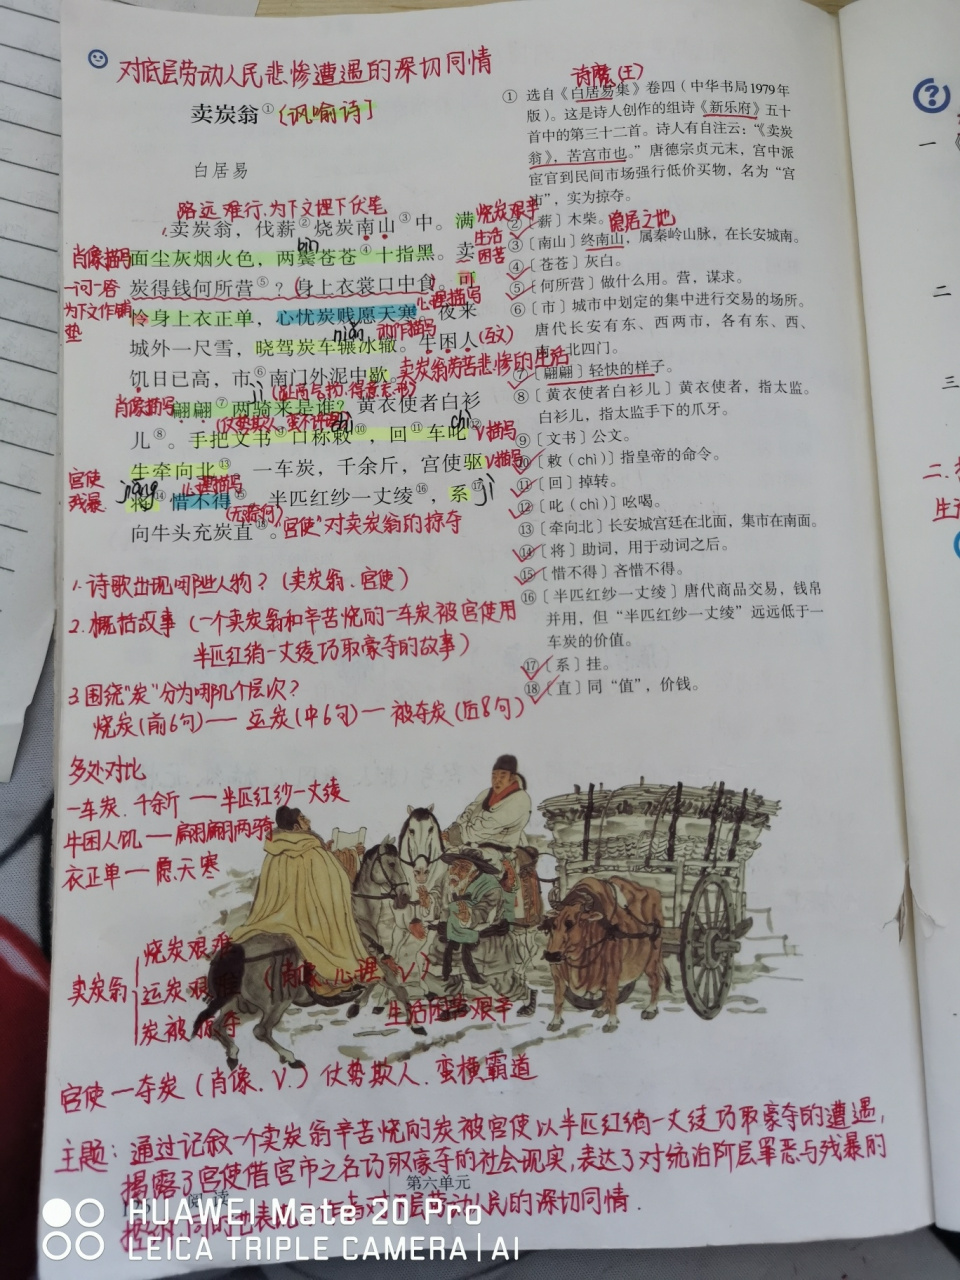 对底层劳动人民悲惨遭遇的深切同情
卖炭翁① [讽喻诗]
白居易
路远难行.为下文埋下伏笔
卖炭翁，伐薪②烧炭南山③中。满
烧炭艰辛
生活
困苦
肖像描写
bìn
面尘灰烟火色，两鬓苍苍④十指黑。卖
一问一答
炭得钱何所营⑤？身上衣裳口中食。可
为下文作铺
垫
心理描写
怜身上衣正单，心忧炭贱愿天寒。夜来
niǎn 动作描写
城外一尺雪，晓驾炭车辗冰辙。牛困人
(互文)
卖炭翁劳苦悲惨的生活
饥日已高，市⑥南门外泥中歇。
肖像描写
翩翩⑦两骑来是谁？黄衣使者白衫
jì
chì
儿⑧。手把文书⑨口称敕⑩，回⑪车叱⑫
V描写
牛牵向北⑬。一车炭，千余斤，宫使驱
V描写
宫使
残暴
jiāng
心理描写
将⑭惜不得⑮。半匹红纱一丈绫⑯，系⑰
jì
(无奈何)
向牛头充炭直⑱。
宫使对卖炭翁的掠夺
1.诗歌出现哪些人物？(卖炭翁、宫使)
2.概括故事(一个卖炭翁和辛苦烧的一车炭被宫使用
半匹红绡一丈绫巧取豪夺的故事)
3.围绕"炭"分为哪几个层次？
烧炭(前6句)— 运炭(中6句)— 被夺炭(后8句)
多处对比
一车炭.千余斤 — 半匹红纱一丈绫
牛困人饥 — 翩翩两骑
衣正单 — 愿天寒
卖炭翁
烧炭艰难
运炭艰难
炭被掠夺
(肖像.心理.V)
生活困苦艰辛
宫使 — 夺炭(肖像.V.)仗势欺人.蛮横霸道
主题：通过记叙一个卖炭翁辛苦烧的炭被宫使以半匹红绡一丈绫巧取豪夺的遭遇,
揭露了宫使借宫市之名巧取豪夺的社会现实,表达了对统治阶层罪恶与残暴的
第六单元
阅读
诗魔(王)
① 选自《白居易集》卷四（中华书局1979年
版）。这是诗人创作的组诗《新乐府》五十
首中的第三十二首。诗人有自注云：“《卖炭
翁》，苦宫市也。”唐德宗贞元末，宫中派
宦官到民间市场强行低价买物，名为“宫
市”，实为掠夺。
②〔薪〕木柴。
隐居之地
③〔南山〕终南山，属秦岭山脉，在长安城南。
④〔苍苍〕灰白。
⑤〔何所营〕做什么用。营，谋求。
⑥〔市〕城市中划定的集中进行交易的场所。
唐代长安有东、西两市，各有东、西、
南、北四门。
⑦〔翩翩〕轻快的样子。
⑧〔黄衣使者白衫儿〕黄衣使者，指太监。
白衫儿，指太监手下的爪牙。
⑨〔文书〕公文。
⑩〔敕（chì）〕指皇帝的命令。
⑪〔回〕掉转。
⑫〔叱（chì）〕吆喝。
⑬〔牵向北〕长安城宫廷在北面，集市在南面。
⑭〔将〕助词，用于动词之后。
⑮〔惜不得〕吝惜不得。
⑯〔半匹红纱一丈绫〕唐代商品交易，钱帛
并用，但“半匹红纱一丈绫”远远低于一
车炭的价值。
⑰〔系〕挂。
⑱〔直〕同“值”，价钱。
一
二
三
HUAWEI Mate 20 Pro
LEICA TRIPLE CAMERA | AI